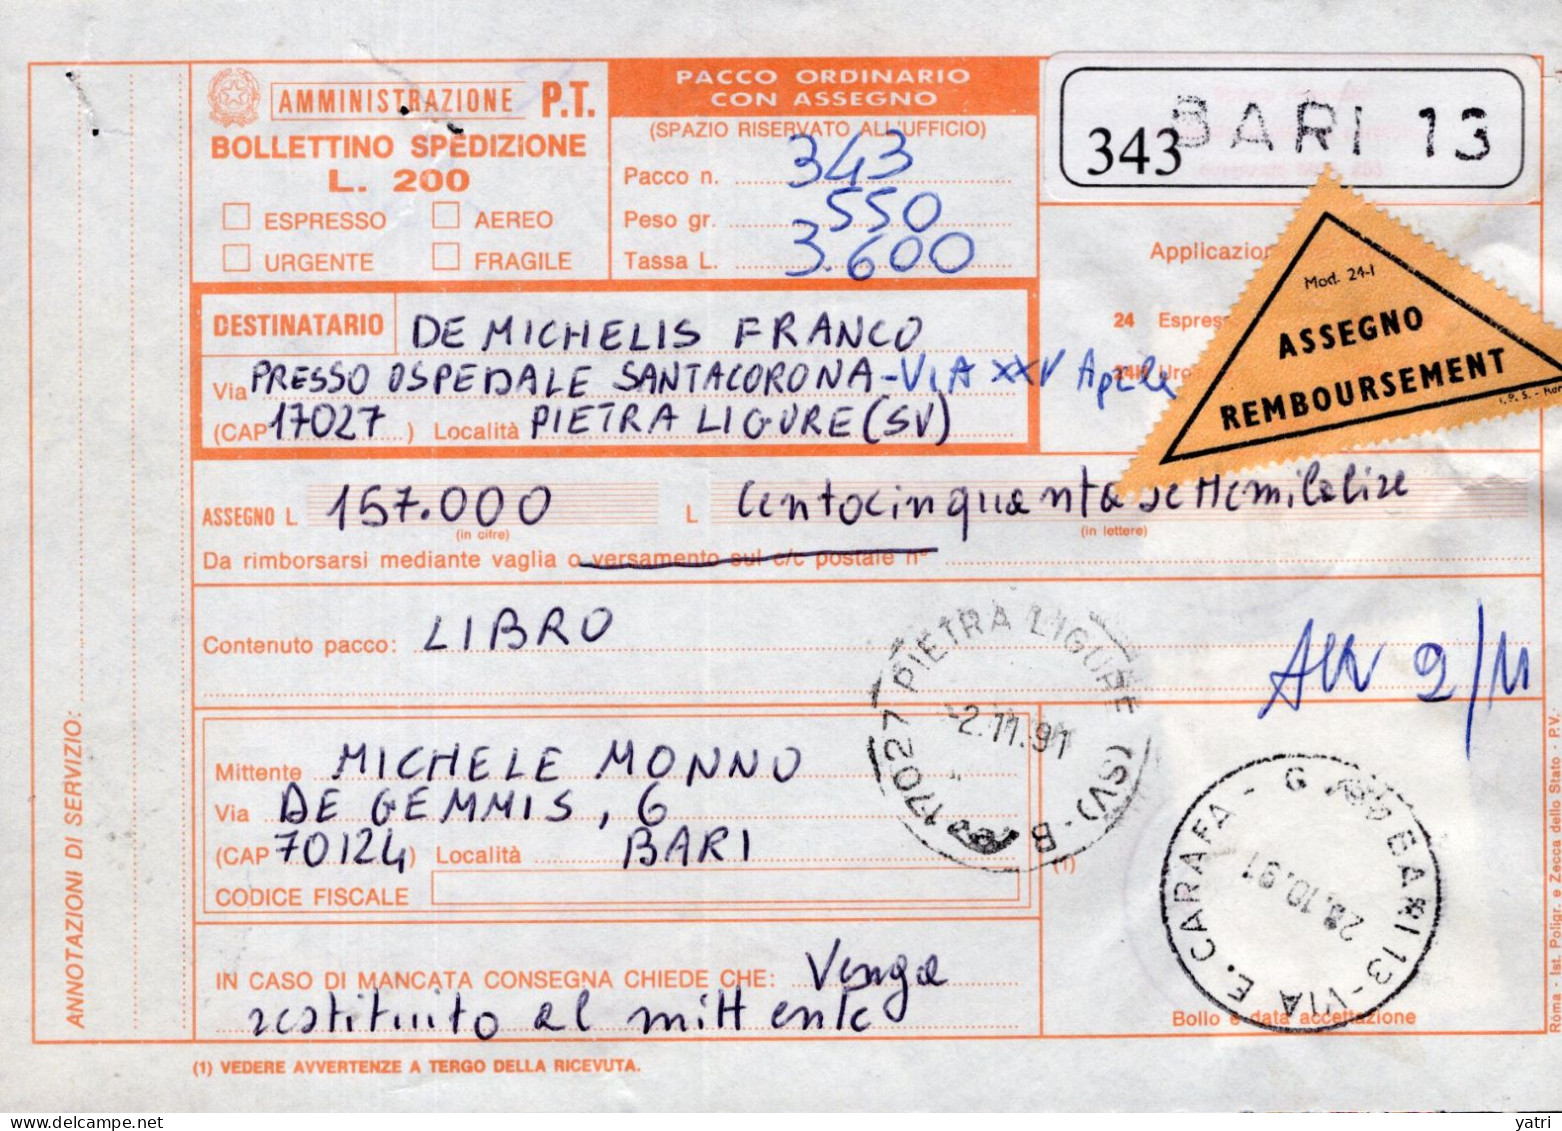 AMMINISTRAZIONE P.T.
BOLLETTINO SPEDIZIONE
L. 200
ESPRESSO AEREO
URGENTE FRAGILE
PACCO ORDINARIO
CON ASSEGNO
(SPAZIO RISERVATO ALL'UFFICIO)
Pacco n. 343
Peso gr. 550
Tassa L. 3.600
343 BARI 13
Applicazion
24 Espres
24H Ur
Mod. 24-I
ASSEGNO
REMBOURSEMENT
I.P.S. - Rom
DESTINATARIO DE MICHELIS FRANCO
Via PRESSO OSPEDALE SANTACORONA - VIA XXV Aprile
(CAP 17027) Località PIETRA LIGURE (SV)
ASSEGNO L. 157.000 L centocinquantasettemilalire
(in cifre) (in lettere)
Da rimborsarsi mediante vaglia o versamento sul c/c postale n°
Contenuto pacco: LIBRO
Avv 2/11
17027 PIETRA LIGURE (SV) - B
-2.11.91
Mittente MICHELE MONNO
Via DE GEMMIS, 6
(CAP 70124) Località BARI
CODICE FISCALE
(1)
BARI 13 - VIA E. CARAFA - G
28.10.91
Bollo e data accettazione
IN CASO DI MANCATA CONSEGNA CHIEDE CHE: Venga
restituito al mittente
(1) VEDERE AVVERTENZE A TERGO DELLA RICEVUTA.
ANNOTAZIONI DI SERVIZIO:
Roma - Ist. Poligr. e Zecca dello Stato - P.V.
yatri